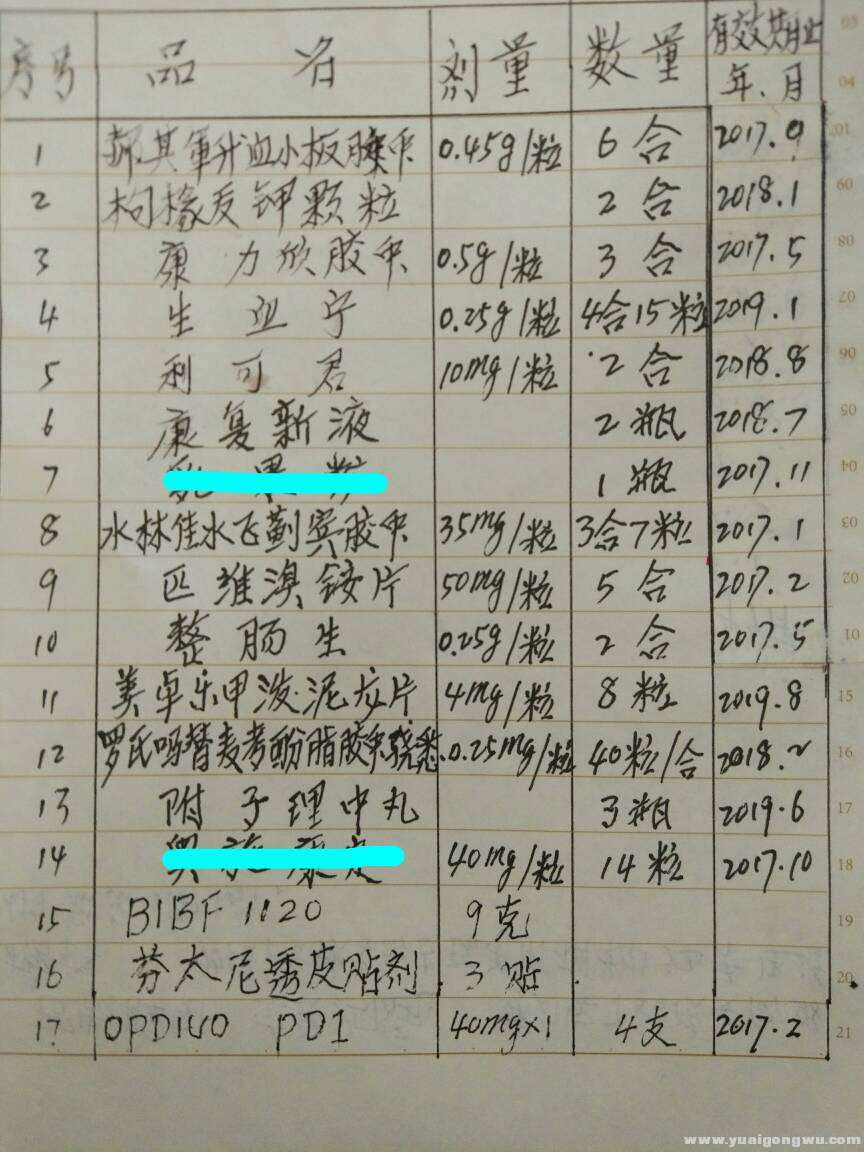 序号 品名 剂量 数量 有效期止
年.月
1 郝其军升血小板胶囊 0.45g/粒 6合 2017.9
2 枸橼酸钾颗粒 2合 2018.1
3 康力欣胶囊 0.5g/粒 3合 2017.5
4 生血宁 0.25g/粒 4合15粒 2019.1
5 利可君 10mg/粒 2合 2018.8
6 康复新液 2瓶 2018.7
7 1瓶 2017.11
8 水林佳水飞蓟宾胶囊 35mg/粒 3合7粒 2017.1
9 匹维溴铵片 50mg/粒 5合 2017.2
10 整肠生 0.25g/粒 2合 2017.5
11 美卓乐甲泼尼龙片 4mg/粒 8粒 2019.8
12 罗氏吗替麦考酚脂胶囊骁悉 0.25mg/粒 40粒/合 2018.2
13 附子理中丸 3瓶 2019.6
14 40mg/粒 14粒 2017.10
15 BIBF 1120 9克
16 芬太尼透皮贴剂 3贴
17 OPDIVO PD1 40mg×1 4支 2017.2
www.yuaigongwu.com